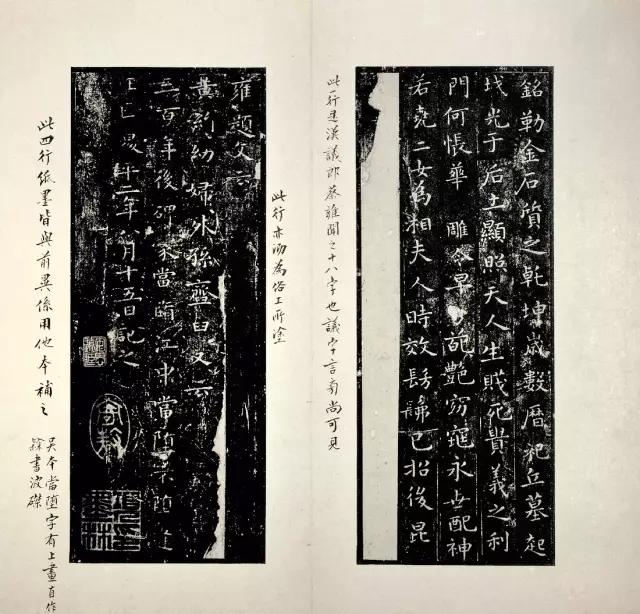 銘勒金石質之乾坤歲數曆祀丘墓起
墳光于后土顯照天人生賤死貴義之利
門何悵華 雕零早 葩艷窈窕永世配神
若堯二女為湘夫人時效髣髴已招後昆
此一行是漢議郎蔡雍聞之十八字也議字言旁尚可見
此行亦 為俗工所塗
雍題文云
黃絹幼婦外孫齏臼又云
三百年後碑冢當墮江中當墮不墮逢
王匡 二年八月十五日記之
此四行紙墨皆與前異係用他本補之
吳本當墮字有上畫自作
隸書波磔